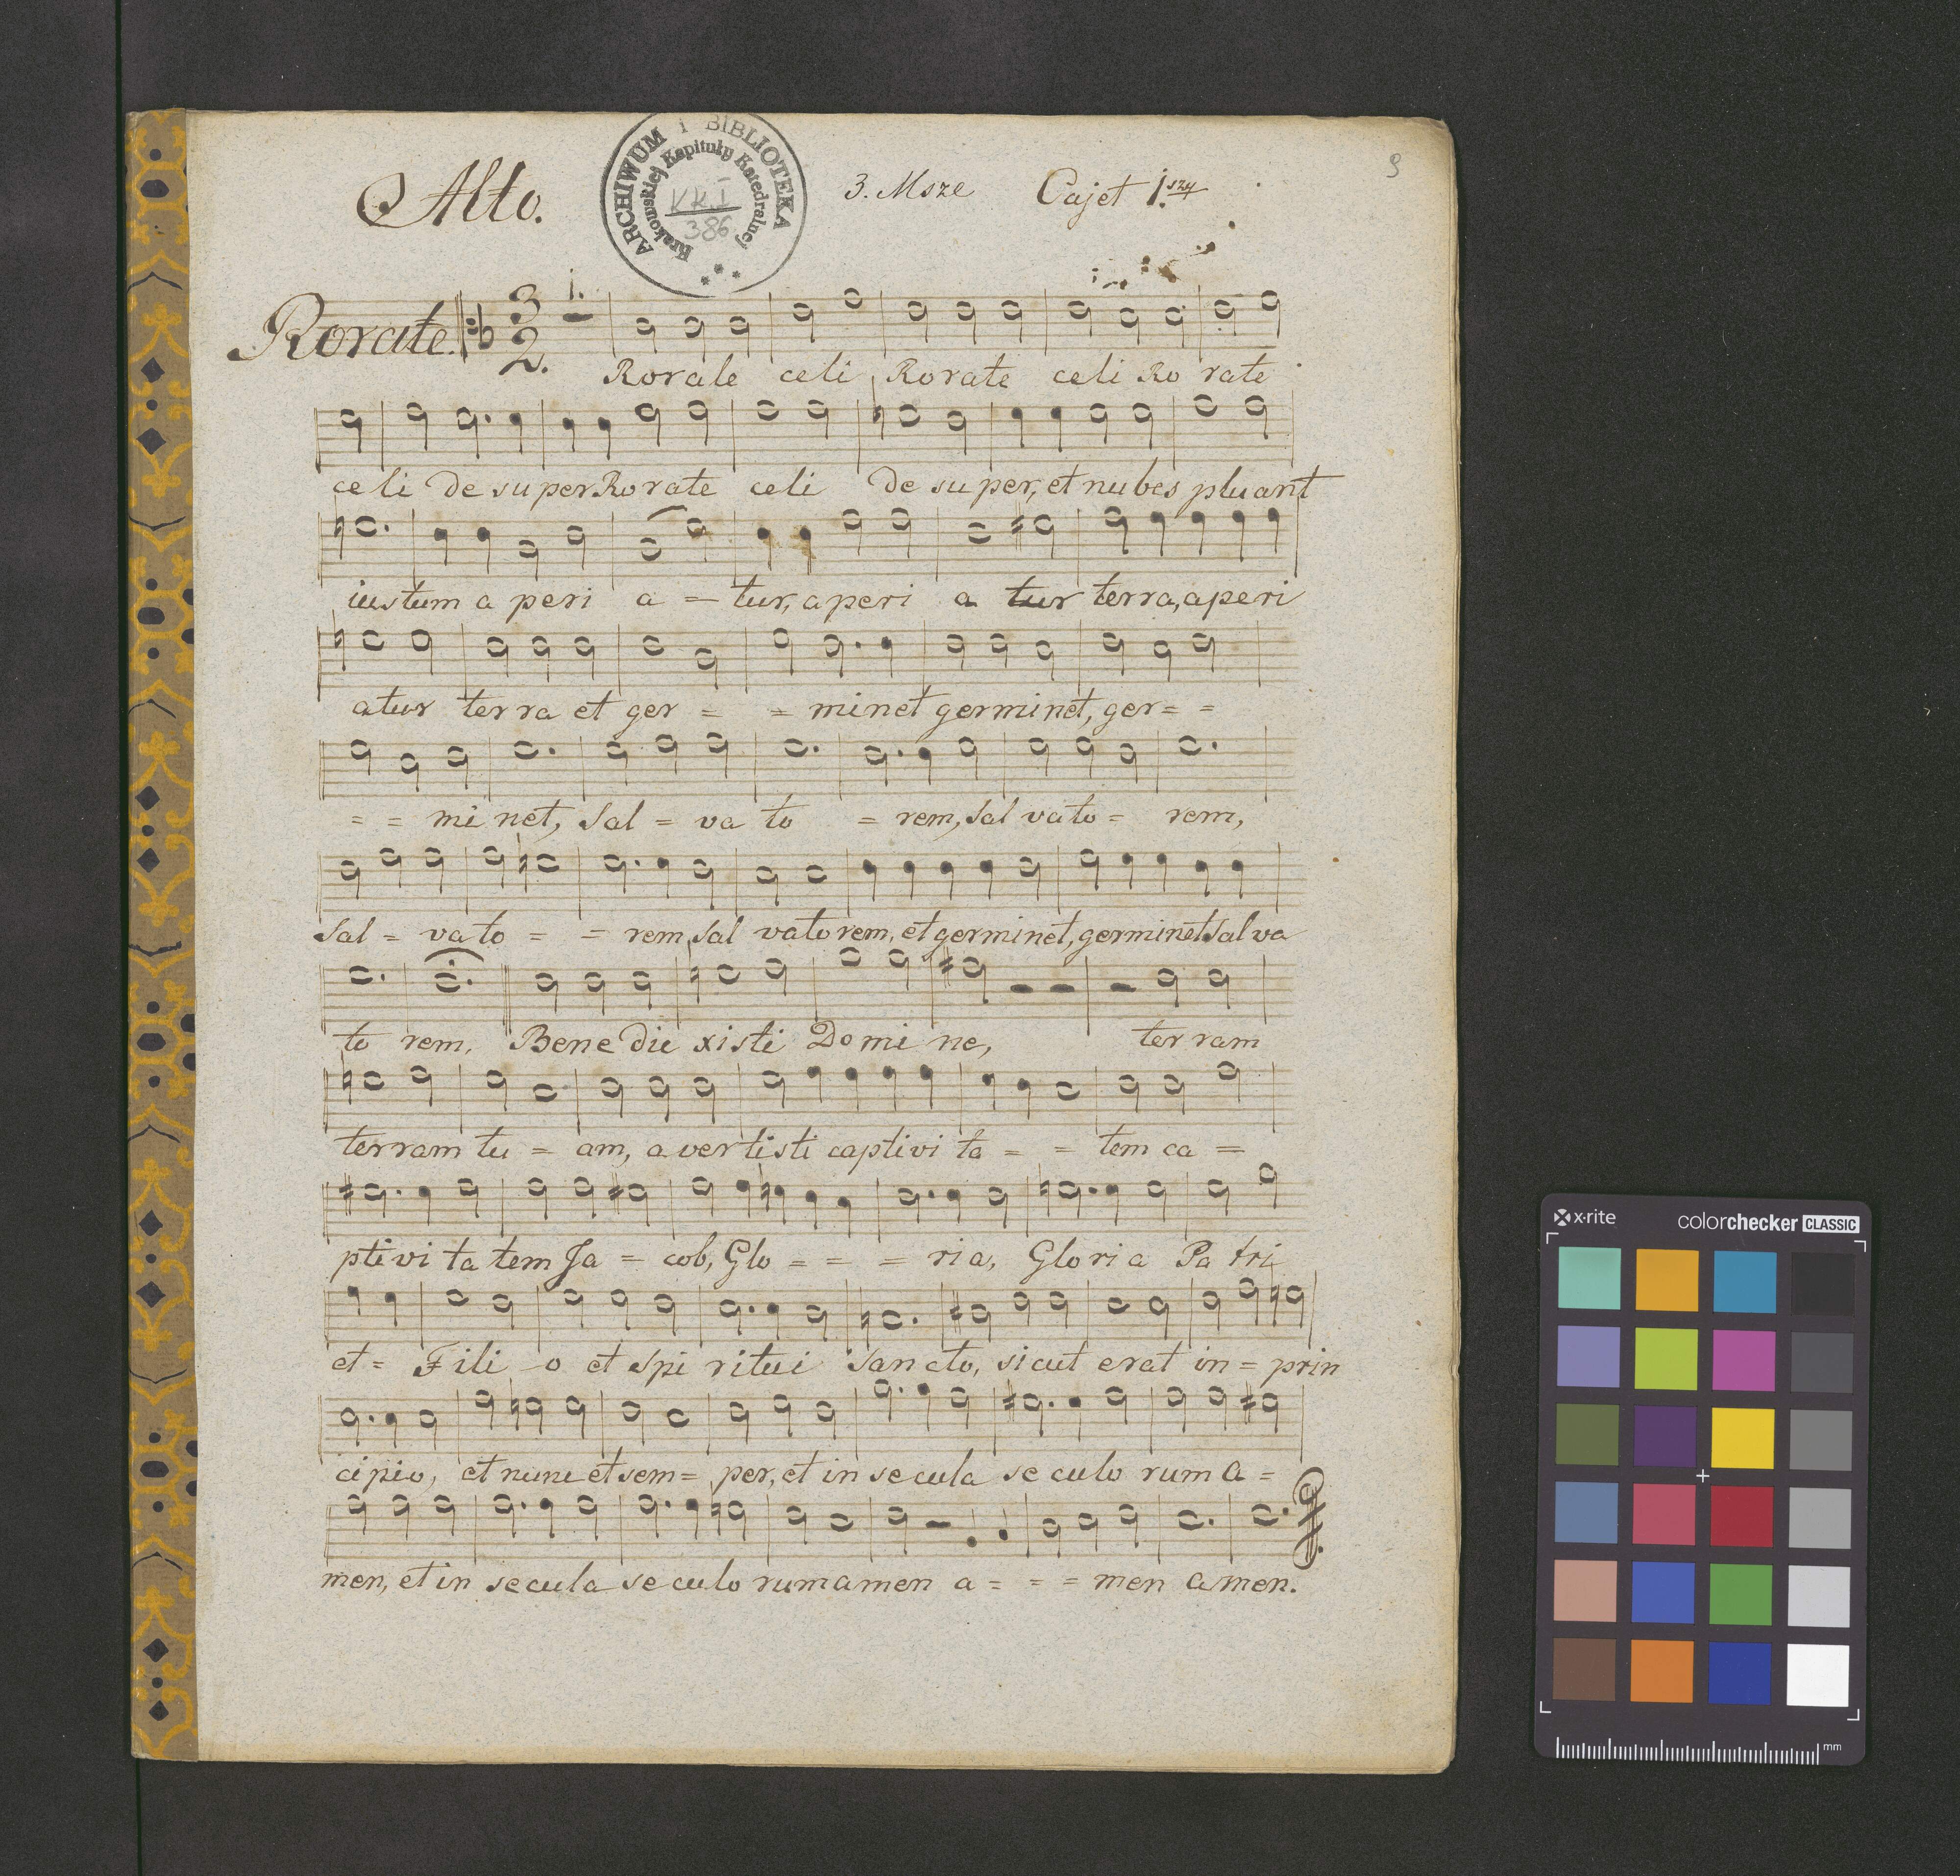 Alto.
ARCHIWUM I BIBLIOTEKA
Krakowskiej Kapituły Katedralnej
KK.I
386
3. Msze Cajet 1.szy
9
Rorate. 3 2. 1.
Rorate celi Rorate celi Ro rate
celi de super Rorate celi de super, et nubes pluant
iustum a peri a = tur, aperi a tur terra, aperi
atur terra et ger = = minet germinet, ger = =
= = mi net, Sal = va to = rem, Sal vato = rem,
Sal = va to = = rem, Sal vatorem, et germinet, germinet Sal va
to rem. Bene dic xisti Domi ne, ter ram
terram tu = am, a vertisti captivi ta = = tem ca =
ptivi ta tem Ja = cob, Glo = = = ria, Gloria Pa tri
et = Fili o et Spi ritui Sancto, sicut erat in = prin
cipio, et nunc et sem = per, et in secula seculo rum a =
men, et in secula seculo rum amen a = = = men amen.
x·rite
colorchecker CLASSIC
mm